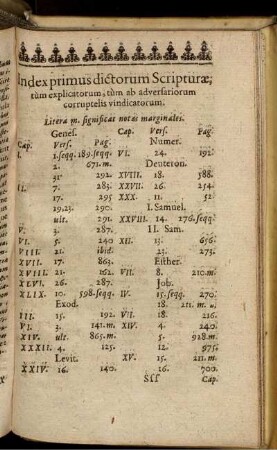 Index primus dictorum Scripturæ,
tùm explicatorum, tùm ab adversariorum
corruptelis vindicatorum.
Litera m. significat notas marginales.
Genes. Cap. Vers. Pag.
Cap. Vers. Pag. Numer.
I. 1. seqq. 189. seqq. VI. 24. 192.
2. 671. m. Deuteron.
31. 292. XVIII. 18. 588.
II. 7. 283. XXVII. 26. 254.
17. 295. XXX. 11. 52.
19.23. 290. I. Samuel.
ult. 291. XXVIII. 14. 276. seqq.
V. 3. 287. II. Sam.
VI. 5. 240 XII. 13. 656.
VIII. 21. ibid. 23. 273.
XVII. 17. 863. Esther.
XVIII. 21. 162. VII. 8. 210. m.
XLVI. 26. 287. Job.
XLIX. 10. 598. seqq. IV. 15. seqq. 270.
Exod. 18. 211. m.
III. 15. 192. VII. 18. 216.
VI. 3. 141. m. XIV. 4. 240.
XIV. ult. 865. m. 5. 928. m.
XXXII. 4. 125. 12. 975.
Levit. XV. 15. 211. m.
XXIV. 16. 140. 16. 700.
Sss Cap.